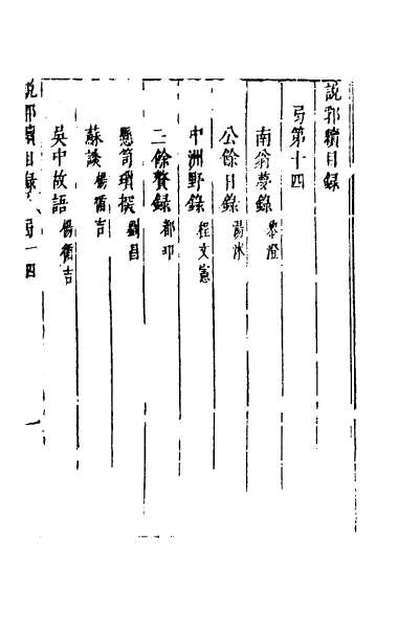 說郛續目錄
弓第十四
南翁夢錄 黎澄
公餘日錄 湯沐
中洲野錄 程文憲
三餘贅錄 都卭
懸笥瑣探 劉昌
蘇談 楊循吉
吳中故語 楊循吉
說郛續目錄 弓十四 一